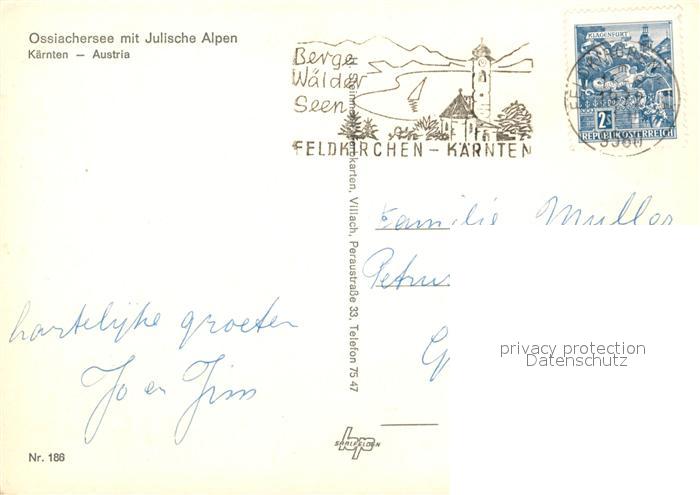 Ossiachersee mit Julische Alpen
Kärnten – Austria
Berge
Wälder
Seen
FELDKIRCHEN – KÄRNTEN
KLAGENFURT
2S
REPUBLIK ÖSTERREICH
9560
Ansichtskarten, Villach, Peraustraße 33, Telefon 75 47
Familie Muller
Petrus
G
hartelijke groeten
Jo en Jim
privacy protection
Datenschutz
SAALFELDEN
Nr. 186